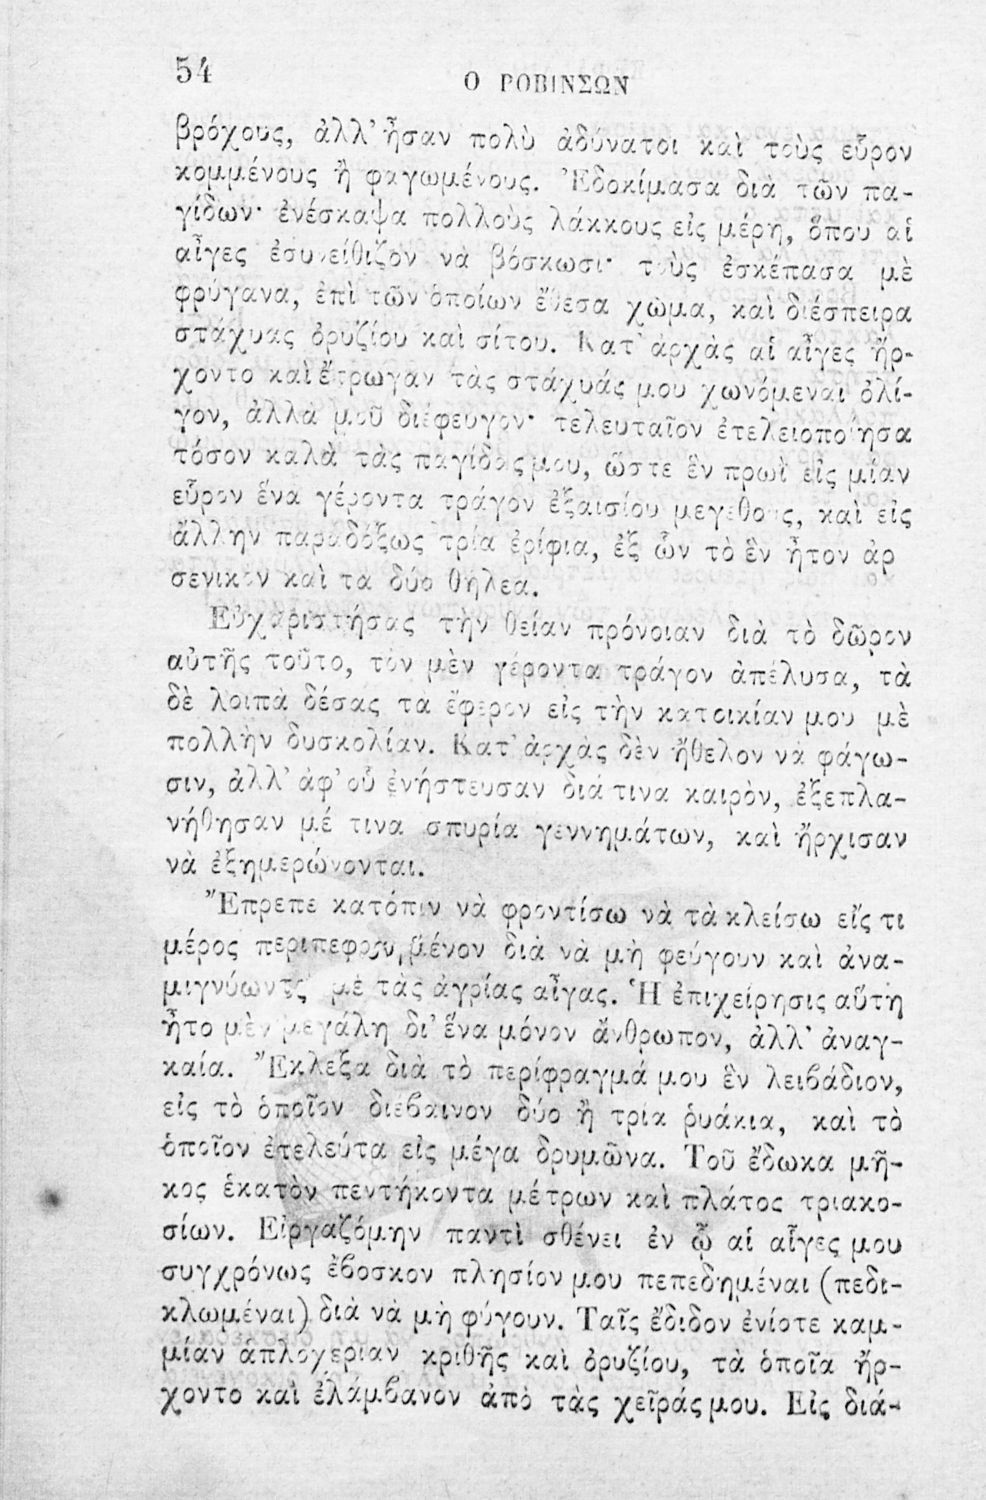 54
Ο ΡΟΒΙΝΣΩΝ
βρόχους, ἀλλ' ἦσαν πολὺ ἀδύνατοι καὶ τοὺς εὗρον
κομμένους ἢ φαγωμένους. Ἐδοκίμασα διὰ τῶν πα-
γίδων· ἐνέσκαψα πολλοὺς λάκκους εἰς μέρη, ὅπου αἱ
αἶγες ἐσυνείθιζον νὰ βόσκωσι· τοὺς ἐσκέπασα μὲ
φρύγανα, ἐπὶ τῶν ὁποίων ἔθεσα χῶμα, καὶ διέσπειρα
στάχυας ὀρυζίου καὶ σίτου. Κατ' ἀρχὰς αἱ αἶγες ἤρ-
χοντο καὶ ἔτρωγαν τὰς στάχυάς μου χωνόμεναι ὀλί-
γον, ἀλλὰ μοῦ διέφευγον· τελευταῖον ἐτελειοποίησα
τόσον καλὰ τὰς παγίδας μου, ὥστε ἓν πρωῒ εἰς μίαν
εὗρον ἕνα γέροντα τράγον ἐξαισίου μεγέθους, καὶ εἰς
ἄλλην παραδόξως τρία ἐρίφια, ἐξ ὧν τὸ ἓν ἦτον ἀρ
σενικὸν καὶ τὰ δύο θήλεα.
Εὐχαριστήσας τὴν θείαν πρόνοιαν διὰ τὸ δῶρον
αὐτῆς τοῦτο, τὸν μὲν γέροντα τράγον ἀπέλυσα, τὰ
δὲ λοιπὰ δέσας τὰ ἔφερον εἰς τὴν κατοικίαν μου μὲ
πολλὴν δυσκολίαν. Κατ' ἀρχὰς δὲν ἤθελον νὰ φάγω-
σιν, ἀλλ' ἀφ' οὗ ἐνήστευσαν διά τινα καιρὸν, ἐξεπλα-
νήθησαν μέ τινα σπυρία γεννημάτων, καὶ ἤρχισαν
νὰ ἐξημερώνονται.
Ἔπρεπε κατόπιν νὰ φροντίσω νὰ τὰ κλείσω εἴς τι
μέρος περιπεφραγμένον διὰ νὰ μὴ φεύγουν καὶ ἀνα-
μιγνύωνται μὲ τὰς ἀγρίας αἶγας. Ἡ ἐπιχείρησις αὕτη
ἦτο μὲν μεγάλη δι' ἕνα μόνον ἄνθρωπον, ἀλλ' ἀναγ-
καία. Ἔκλεξα διὰ τὸ περίφραγμά μου ἓν λειβάδιον,
εἰς τὸ ὁποῖον διέβαινον δύο ἢ τρία ῥυάκια, καὶ τὸ
ὁποῖον ἐτελεύτα εἰς μέγα δρυμῶνα. Τοῦ ἔδωκα μῆ-
κος ἑκατὸν πεντήκοντα μέτρων καὶ πλάτος τριακο-
σίων. Εἰργαζόμην παντὶ σθένει ἐν ᾧ αἱ αἶγες μου
συγχρόνως ἔβοσκον πλησίον μου πεπεδημέναι (πεδι-
κλωμέναι) διὰ νὰ μὴ φύγουν. Ταῖς ἔδιδον ἐνίοτε καμ-
μίαν ἁπλοχερίαν κριθῆς καὶ ὀρυζίου, τὰ ὁποῖα ἤρ-
χοντο καὶ ἐλάμβανον ἀπὸ τὰς χεῖράς μου. Εἰς διά-